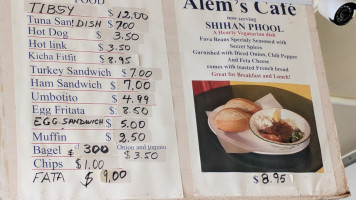 FOOD
TIBSY $12.00
Tuna San/DISH $700
Hot Dog $ 3.50
Hot link $ 3.50
Kicha Fitfit $8.95
Turkey Sandwich $7.00
Ham Sandwich $7.00
Umbotito $4.99
Egg Fritata $8.50
EGG.SANDWICH $5.00
Muffin $2.50
Bagel # 300 Onion and tomato $3.50
Chips $1.00
FATA $9.00
Alem's Café
now serving
SHIHAN PHOOL
A Hearty Vegetarian dish
Fava Beans Specialy Seasoned with
Secret Spices
Garnished with Diced Onion, Chili Pepper
And Feta Cheese
comes with toasted French bread
Great for Breakfast and Lunch!
$8.95